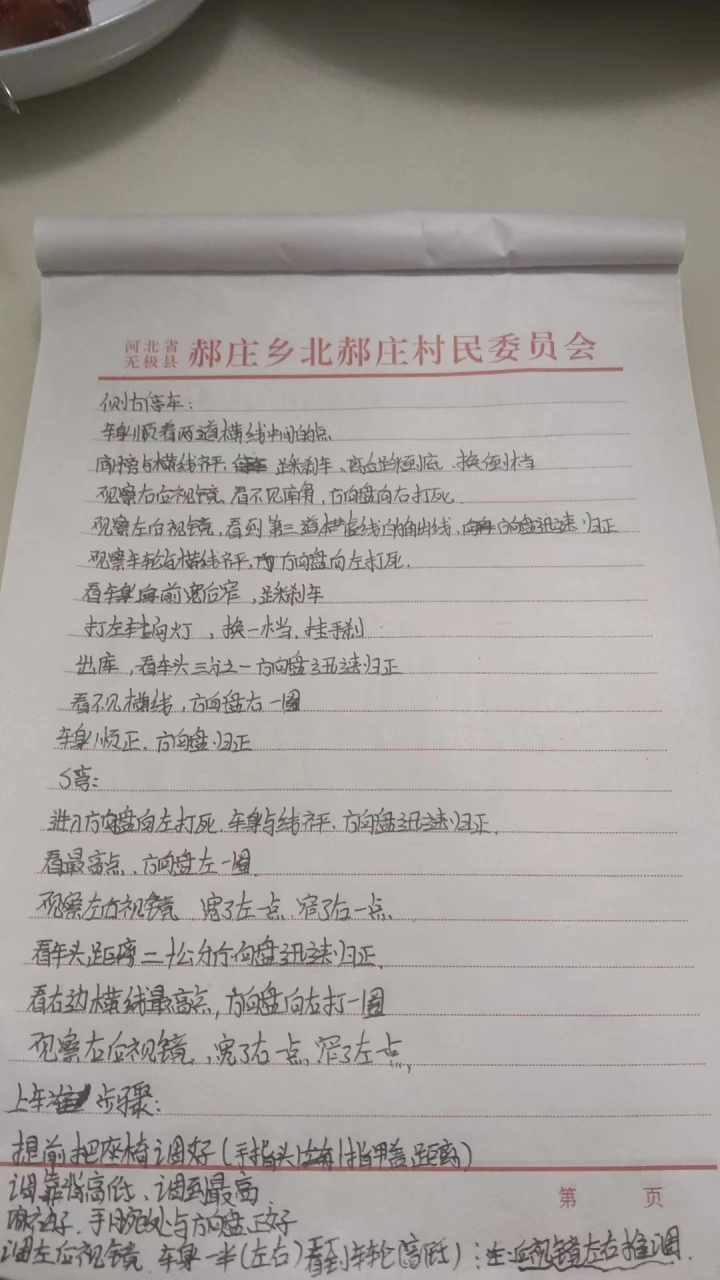 河北省
无极县 郝庄乡北郝庄村民委员会
侧方停车:
车身顺看两道横线中间的点
肩膀与横线齐平, 踩刹车、离合踩到底、换倒档
观察右后视镜, 看不见库角, 方向盘向右打死.
观察左后视镜, 看到第三道横虚线的角出线、方向盘迅速归正
观察车轮与横线齐平, 方向盘向左打死.
看车身前宽后窄, 踩刹车
打左转向灯, 换一档, 挂手刹
出库, 看车头三分之一方向盘迅速归正
看不见横线, 方向盘右一圈
车身顺正、方向盘归正
S弯:
进入方向盘向左打死. 车身与线齐平、方向盘迅速归正.
看最高点、方向盘左一圈.
观察左后视镜 宽了左一点、窄了右一点、
看车头距离二十公分方向盘迅速归正.
看右边横线最高点, 方向盘向右打一圈
观察右后视镜, 宽了右一点, 窄了左一点,
上车 步骤:
提前把座椅调好 (手指头 指甲盖距离)
调靠背高低、调到最高
好 手腕处与方向盘正好
调左后视镜 车身一半(左右) 看到车轮(高低): 后视镜左右推调.
第 页